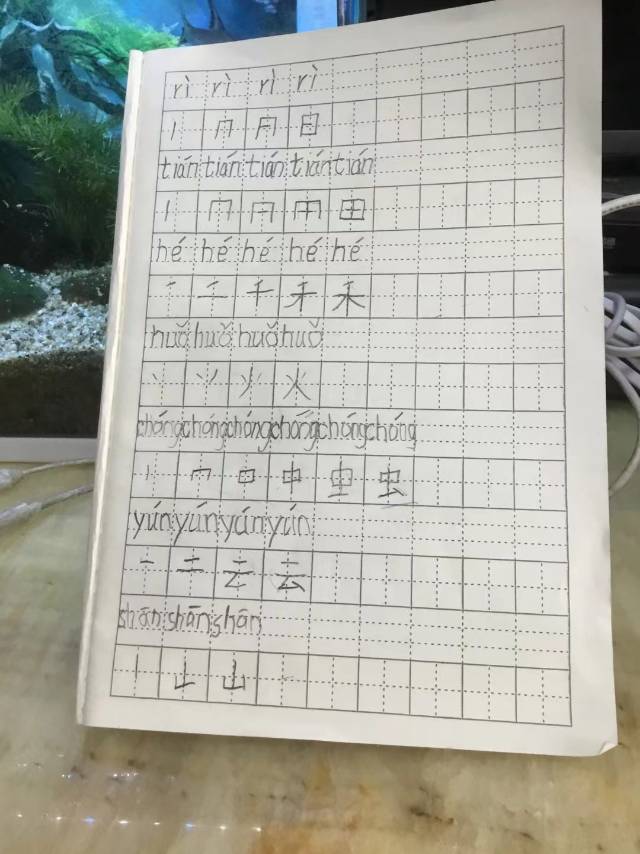 rì rì rì rì
丨 冂 日
tián tián tián tián tián
丨 冂 田
hé hé hé hé hé
一 二 千 禾
huǒ huǒ huǒ huǒ
丶 丷 火
chóng chóng chóng chóng chóng chóng
丨 口 中 虫
yún yún yún yún
一 二 云
shān shān shān
丨 山